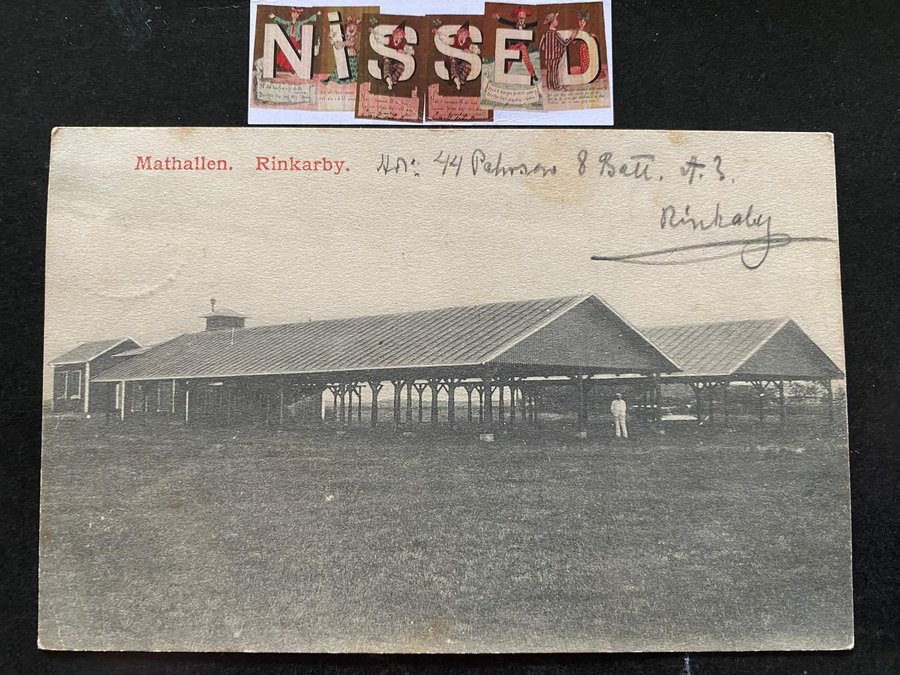 NiSSED
Mathallen. Rinkarby. No: 44 8 Batt. A. 3.
Rinkaby